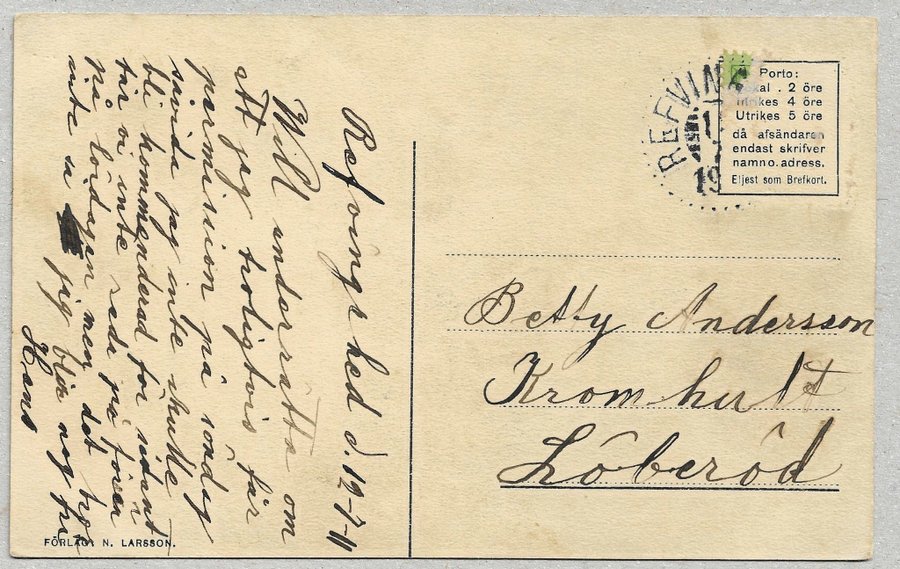 Refvingehed d. 19-7-11
Will underrätta om
att jag troligtvis får
permission på söndag
såvida jag inte skulle
bli kommenderad för sådant
får vi inte reda på fören
nu lördagen men det tror
inte så jag blir nog fri
Hans
FÖRLAG: N. LARSSON.
REFVING
19
Porto:
Lokal . 2 öre
Inrikes 4 öre
Utrikes 5 öre
då afsändaren
endast skrifver
namn o. adress.
Eljest som Brefkort.
Betty Andersson
Kromhult
Löberöd